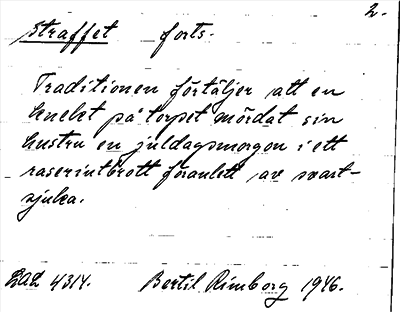 2.
Straffet forts.
Traditionen förtäljer att en
knekt på torpet mördat sin
hustru en juldagsmorgon i ett
raseriutbrott föranlett av svart-
sjuka.
Bertil Rimborg 1946.